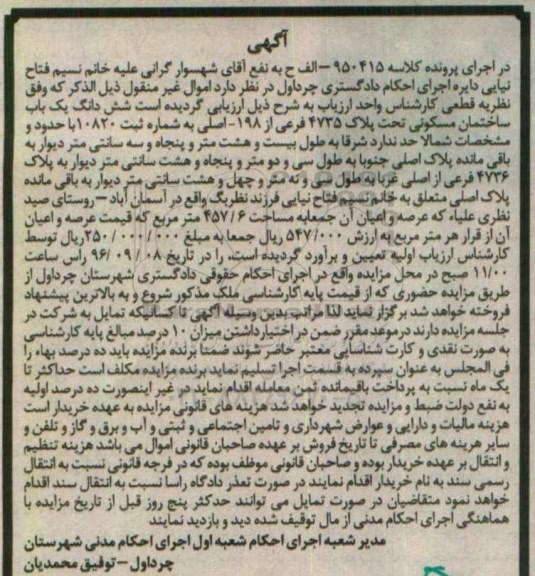 آگهی
در اجرای پرونده کلاسه ۹۵۰۴۱۵ –الف ح به نفع آقای شهسوار گرانی علیه خانم نسیم فتاح
نیایی دایره اجرای احکام دادگستری چرداول در نظر دارد اموال غیر منقول ذیل الذکر که وفق
نظریه قطعی کارشناس واحد ارزیاب به شرح ذیل ارزیابی گردیده است شش دانگ یک باب
ساختمان مسکونی تحت پلاک ۴۷۳۵ فرعی از ۱۹۸- اصلی به شماره ثبت ۱۰۸۲۰با حدود و
مشخصات شمالا حد ندارد شرقا به طول بیست و هشت متر و پنجاه و سه سانتی متر دیوار به
باقی مانده پلاک اصلی جنوبا به طول سی و دو متر و پنجاه و هشت سانتی متر دیوار به پلاک
۴۷۳۶ فرعی از اصلی غربا به طول سی و نه متر و چهل و هشت سانتی متر دیوار به باقی مانده
پلاک اصلی متعلق به خانم نسیم فتاح نیایی فرزند نظربگ واقع در آسمان آباد – روستای صید
نظری علیاء که عرصه و اعیان آن جمعابه مساحت ۴۵۷/۶ متر مربع که قیمت عرصه و اعیان
آن از قرار هر متر مربع به ارزش ۵۴۷/۰۰۰ ریال جمعا به مبلغ ۲۵۰/۰۰۰/۰۰۰ریال توسط
کارشناس ارزیاب اولیه تعیین و برآورد گردیده است، را در تاریخ ۰۸ /۰۹ /۹۶ راس ساعت
۱۱/۰۰ صبح در محل مزایده واقع در اجرای احکام حقوقی دادگستری شهرستان چرداول از
طریق مزایده حضوری که از قیمت پایه کارشناسی ملک مذکور شروع و به بالاترین پیشنهاد
فروخته خواهد شد برگزار نماید لذا مراتب بدین وسیله آگهی تا کسانیکه تمایل به شرکت در
جلسه مزایده دارند در موعد مقرر ضمن در اختیار داشتن میزان ۱۰ درصد مبالغ پایه کارشناسی
به صورت نقدی و کارت شناسایی معتبر حاضر شوند ضمنا برنده مزایده باید ده درصد بهاء را
فی المجلس به عنوان سپرده به قسمت اجرا تسلیم نماید برنده مزایده مکلف است حداکثر تا
یک ماه نسبت به پرداخت باقیمانده ثمن معامله اقدام نماید در غیر اینصورت ده درصد اولیه
به نفع دولت ضبط و مزایده تجدید خواهد شد هزینه های قانونی مزایده به عهده خریدار است
هزینه مالیات و دارایی و عوارض شهرداری و تامین اجتماعی و ثبتی و آب و برق و گاز و تلفن و
سایر هزینه های مصرفی تا تاریخ فروش بر عهده صاحبان قانونی اموال می باشد هزینه تنظیم
و انتقال بر عهده خریدار بوده و صاحبان قانونی موظف بوده که در فرجه قانونی نسبت به انتقال
رسمی سند به نام خریدار اقدام نمایند در صورت تعذر دادگاه راسا نسبت به انتقال سند اقدام
خواهد نمود متقاضیان در صورت تمایل می توانند حدکثر پنج روز قبل از تاریخ مزایده با
هماهنگی اجرای احکام مدنی از مال توقیف شده دید و بازدید نمایند
مدیر شعبه اجرای احکام شعبه اول اجرای احکام مدنی شهرستان
چرداول – توفیق محمدیان